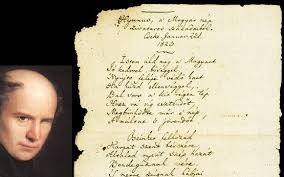 Hymnus, a' Magyar nép
zivataros századaiból.
Cseke, Január 22d.
1823
Isten áldd meg a' Magyart
Jó kedvvel, bőséggel,
Nyújts feléje védő kart
Ha küzd ellenséggel,
Bal sors a' kit régen tép
Hozz rá víg esztendőt,
Megbűnhődte már e' nép
A' multat 's jövendőt.
Őseinket felhozád
Kárpát szent bérczére,
Általad nyert szép hazát
Bendegúznak vére.
'S merre zúgnak habjai